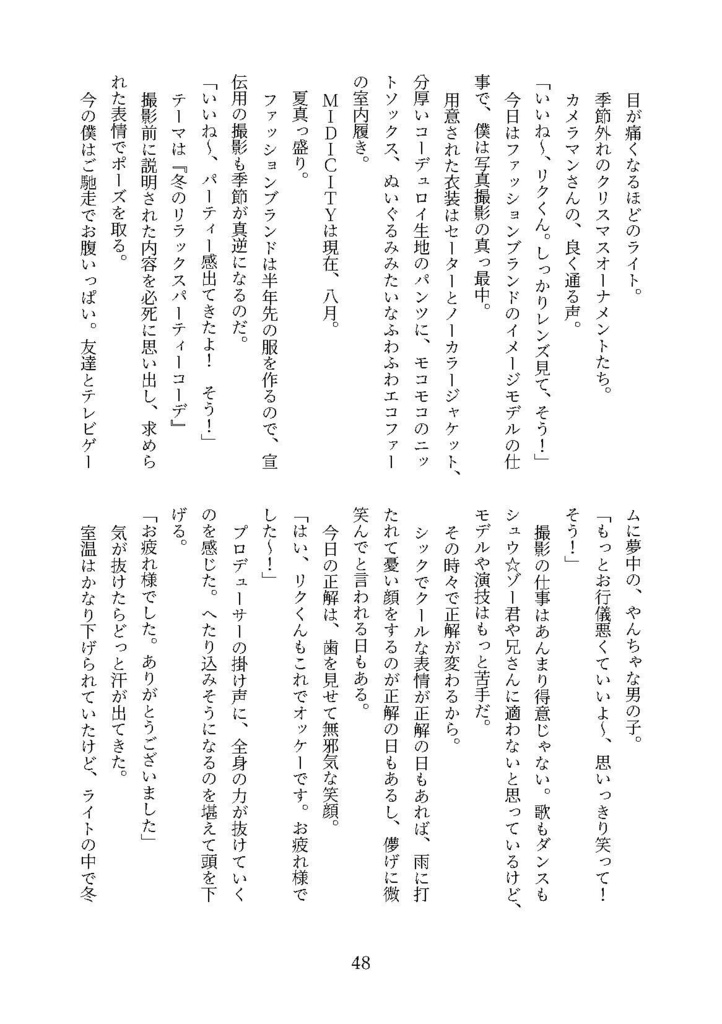 目が痛くなるほどのライト。
季節外れのクリスマスオーナメントたち。
カメラマンさんの、良く通る声。
「いいね〜、リクくん。しっかりレンズ見て、そう！」
今日はファッションブランドのイメージモデルの仕
事で、僕は写真撮影の真っ最中。
用意された衣装はセーターとノーカラージャケット、
分厚いコーデュロイ生地のパンツに、モコモコのニッ
トソックス、ぬいぐるみみたいなふわふわエコファー
の室内履き。
ＭＩＤＩＣＩＴＹは現在、八月。
夏真っ盛り。
ファッションブランドは半年先の服を作るので、宣
伝用の撮影も季節が真逆になるのだ。
「いいね〜、パーティー感出てきたよ！　そう！」
テーマは『冬のリラックスパーティーコーデ』
撮影前に説明された内容を必死に思い出し、求めら
れた表情でポーズを取る。
今の僕はご馳走でお腹いっぱい。友達とテレビゲー
ムに夢中の、やんちゃな男の子。
「もっとお行儀悪くていいよ〜、思いっきり笑って！
そう！」
撮影の仕事はあんまり得意じゃない。歌もダンスも
シュウ☆ゾー君や兄さんに適わないと思っているけど、
モデルや演技はもっと苦手だ。
その時々で正解が変わるから。
シックでクールな表情が正解の日もあれば、雨に打
たれて憂い顔をするのが正解の日もあるし、儚げに微
笑んでと言われる日もある。
今日の正解は、歯を見せて無邪気な笑顔。
「はい、リクくんもこれでオッケーです。お疲れ様で
した〜！」
プロデューサーの掛け声に、全身の力が抜けていく
のを感じた。へたり込みそうになるのを堪えて頭を下
げる。
「お疲れ様でした。ありがとうございました」
気が抜けたらどっと汗が出てきた。
室温はかなり下げられていたけど、ライトの中で冬
48